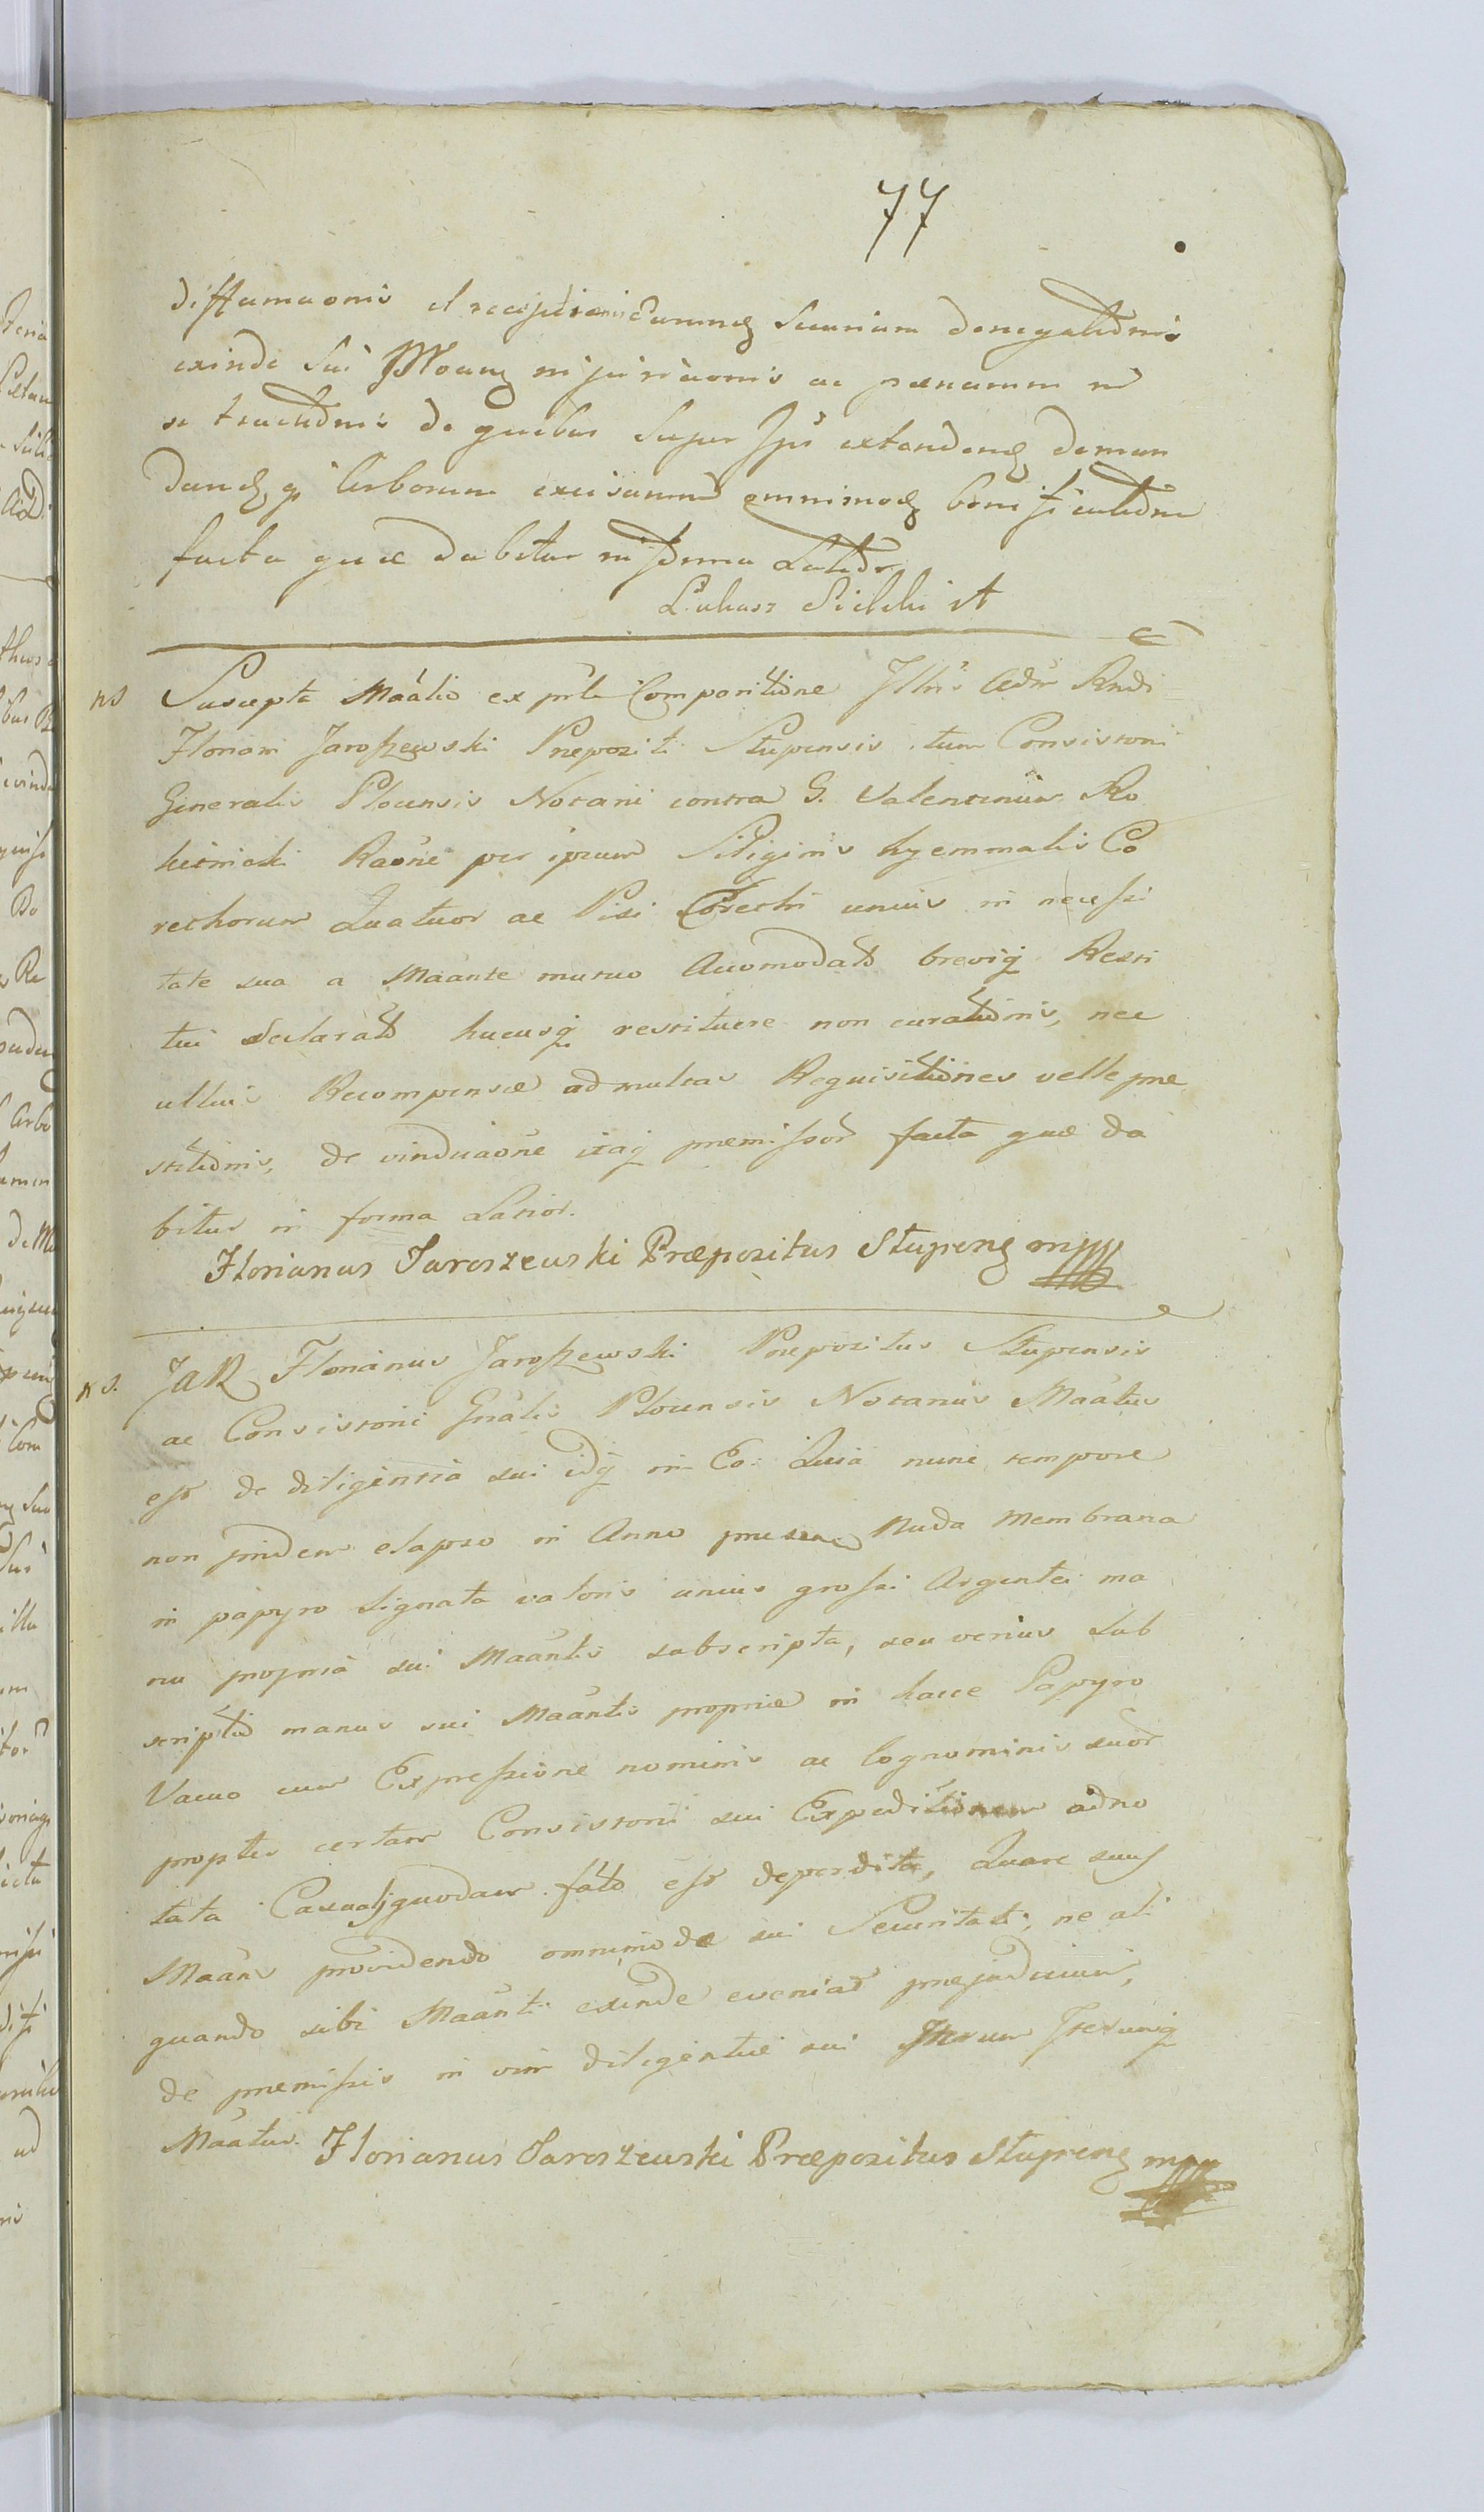 77
diffamaonis et receptionis Earumq Securium denegationis
exinde Sui Moang injuriaonis ac paenarum in
se tractionis de quibus Super Ipso extendend deman
dand et Arborum excisarum omnimod bonificatione
facta quae dabitur in forma Latior
Lukasz Sicicki st
ns Suscepta Maatio ex prte Compositione Illris Adm Rndi
Floriani Jaroszewski Prepoziti Stupensis, tum Consistorii
Generalis Plocensis Notarii contra G. Valentinum Ro
kicinicki Raone per ipsum Siliginis hyemmalis Co
rethorum Quatuor ac Pisi Corethi unius in necessi
tate sua a Maante mutuo Accomodato brevig Resti
tui declarato hucusq restituere non curationis, nec
ullius Recompensae ad multas Requisitiones velle prae
stitionis, de vindicaone itaq praemissor facta quae da
bitur in forma Latior.
Florianus Jaroszewski Præpozitus Stupeng mppp
ns. JAR Florianus Jaroszewski Prepozitus Stupensis
ac Consistorii Gnalis Plocensis Notarius Maatus
est de diligentia sui idq in Eo: Quia nunc tempore
non pridem elapso in Anno praesen Nuda Membrana
in papyro signata valoris unius grossi Argentei ma
nu propria sui Maantis subscripta, seu verius sub
scriptio manus sui Maantis propriae in hacce Papyro
Vacuo cum Expressione nominis ac Cognominis suor
propter certam Consistorii sui Expeditionem adno
tata Casualj quodam fato est deperdita, Quare suus
Maans providendo omnimodae sui Securitati, ne ali
quando sibi Maanti exinde eveniat praejudicium,
de praemissis in vim diligentiae sui Iterum Iterumq
Maatur. Florianus Jaroszewski Præpozitus Stupeng mpp